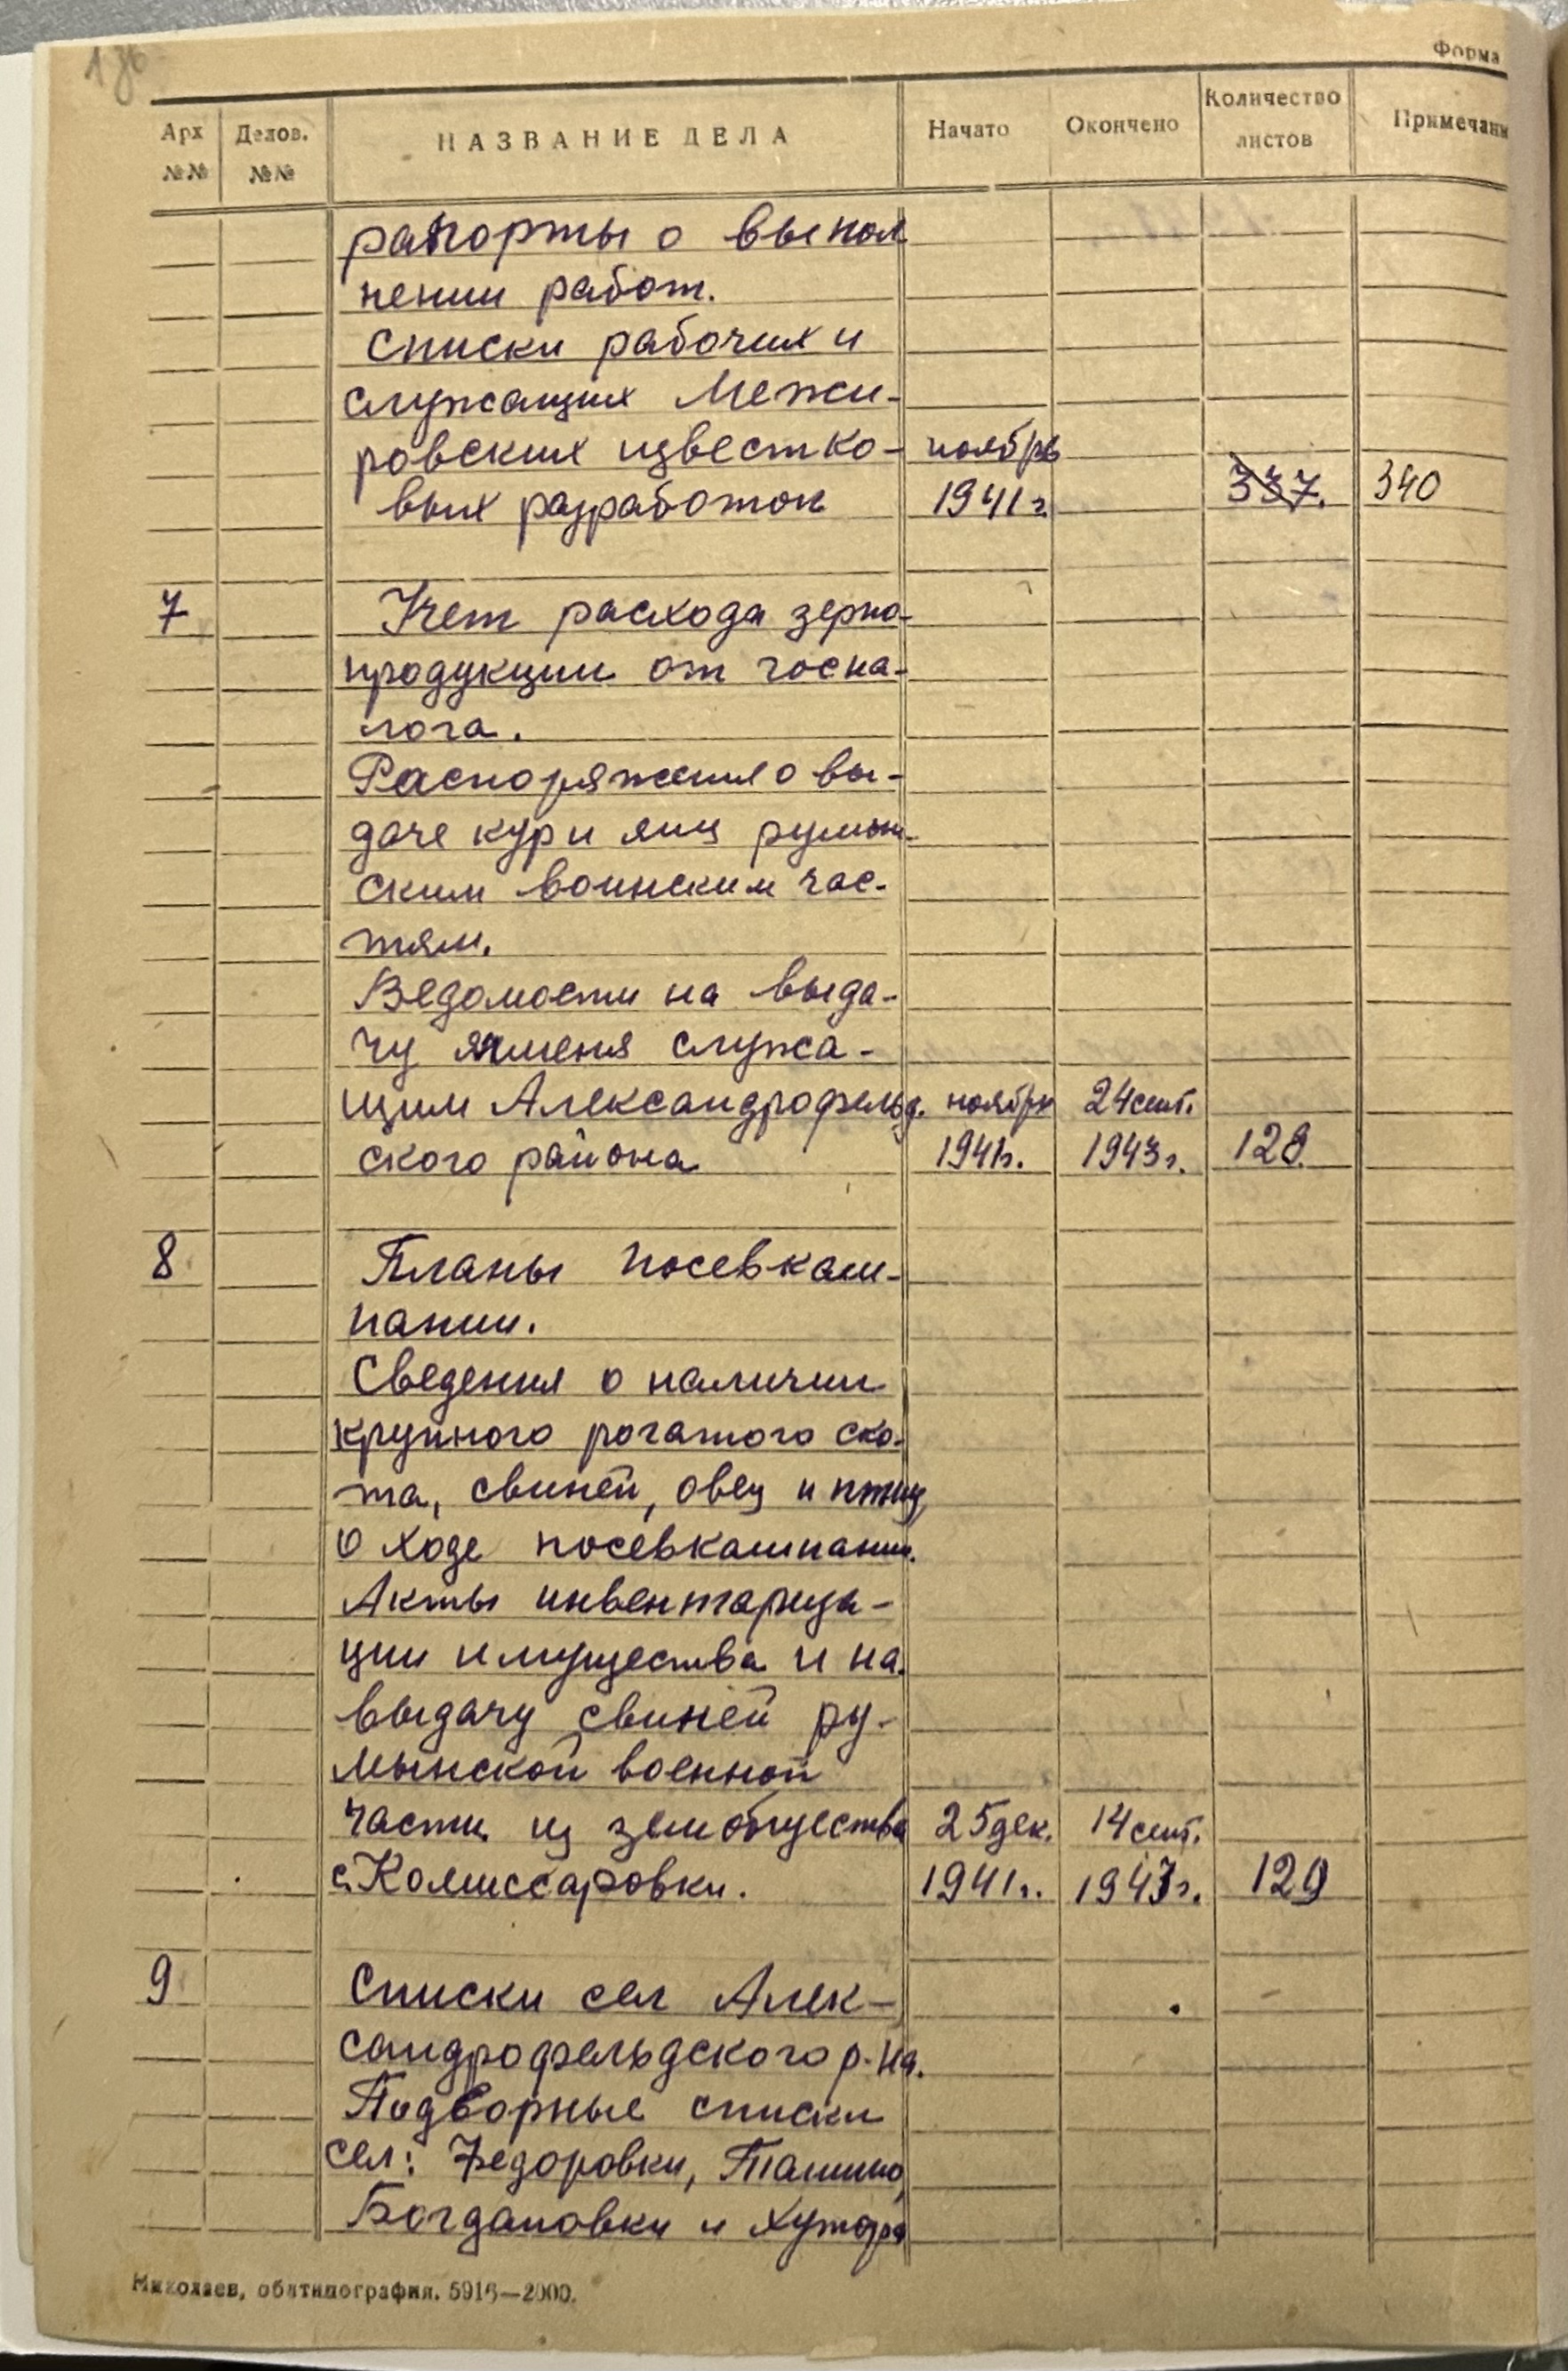 Форма
Арх №№ Делов. №№ НАЗВАНИЕ ДЕЛА Начато Окончено Количество листов Примечани
рапорты о выпол
нении работ.
Списки рабочих и
служащих Межи-
ровских известко- ноябрь
вых разработок 1941 г. 337. 340
7 Учет расхода зерно-
продукции от госна-
лога.
Распоряжения о вы-
даче кур и яиц румын-
ским воинским час-
тям.
Ведомости на выда-
чу ячменя служа-
щим Александрофельд. ноябрь 24 сент.
ского района 1941г. 1943г. 128.
8 Планы посевкам-
пании.
Сведения о наличии
крупного рогатого ско-
та, свиней, овец и птиц,
о ходе посевкампании.
Акты инвентариза-
ции имущества и на
выдачу свиней ру-
мынской военной
части из земобщества 25 дек. 14 сент.
с. Комиссаровки. 1941г. 1943г. 129
9 Списки сел Алек-
сандрофельдского р-на.
Подворные списки
сел: Федоровки, Ташино,
Богдановки и хутора
Николаев, облтипография. 5916—2000.